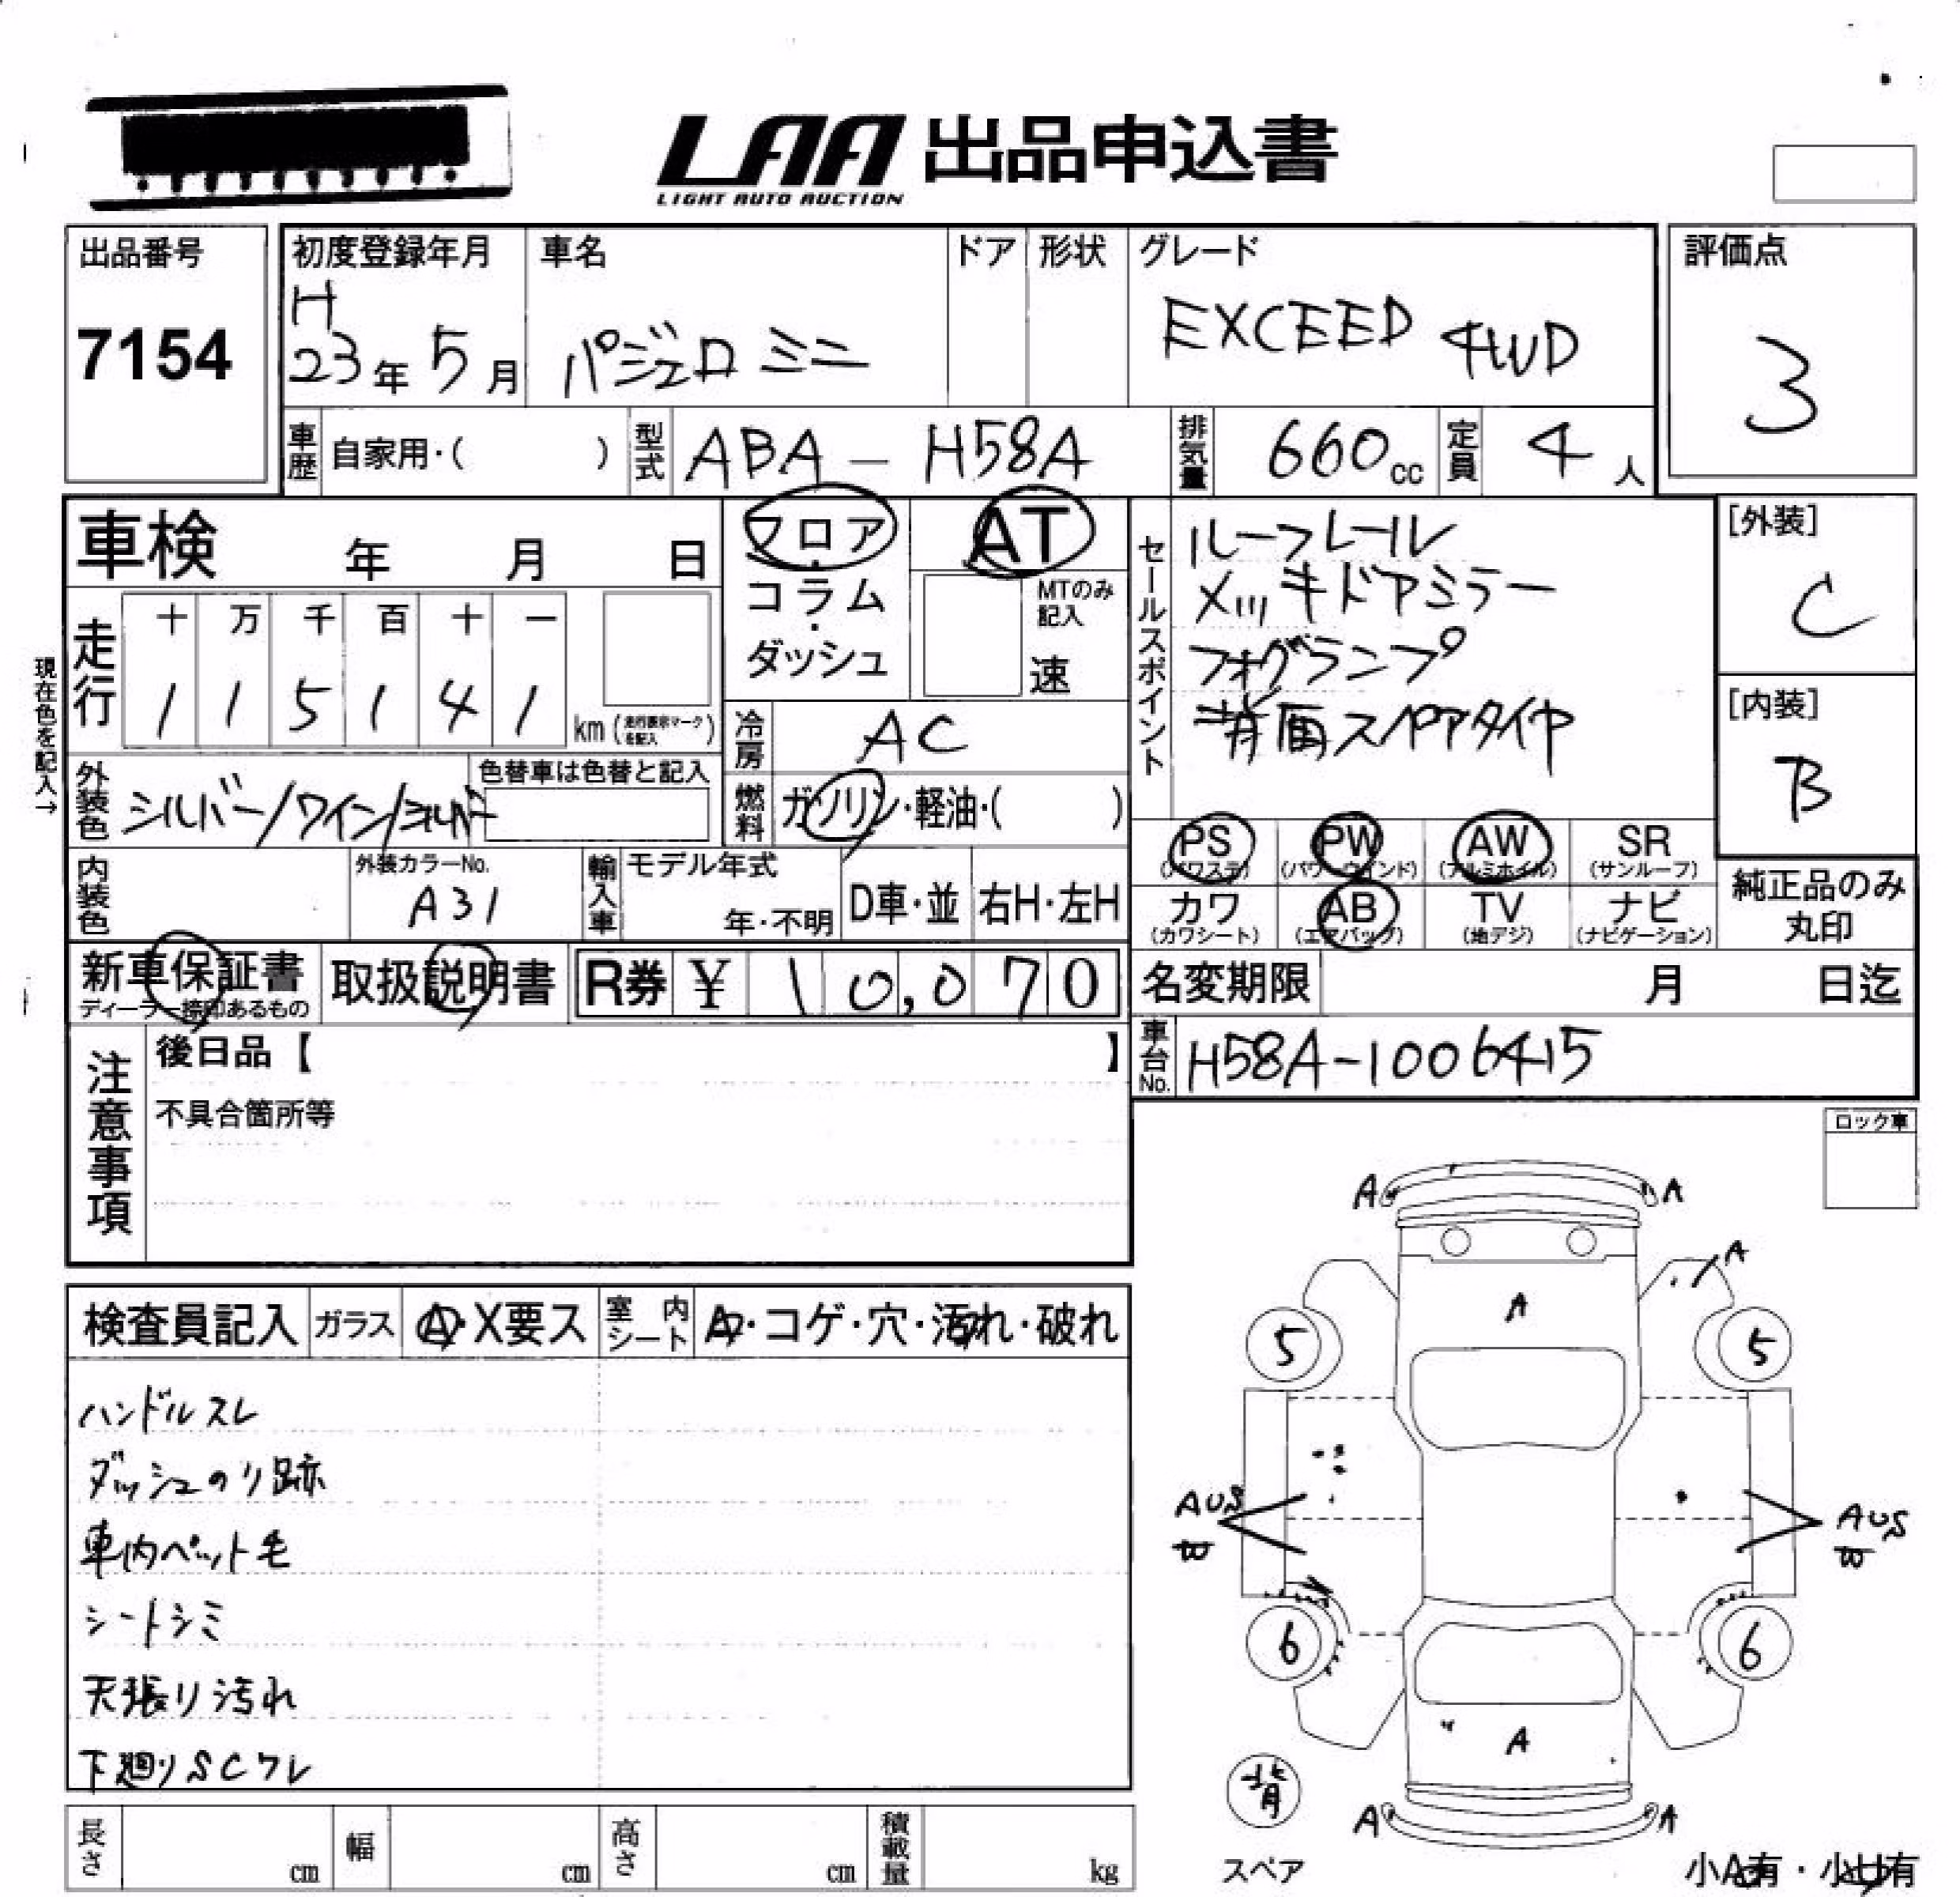 LAA 出品申込書
LIGHT AUTO AUCTION
出品番号
7154
初度登録年月
H
23年 5月
車名
パジェロ ミニ
ドア
形状
グレード
EXCEED 4WD
評価点
3
車歴
自家用・( )
型式
ABA - H58A
排気量
660cc
定員
4人
車検 年 月 日
フロア
・
コラム
・
ダッシュ
AT
MTのみ
記入
速
セールスポイント
ルーフレール
メッキドアミラー
フォグランプ
背面スペアタイヤ
[外装]
C
[内装]
B
現在色を記入→
走行
十 万 千 百 十 一
1 1 5 1 4 1
km (走行表示マークを記入)
冷房
AC
外装色
シルバー/ワイン/シルバー
色替車は色替と記入
燃料
ガソリン・軽油・( )
PS
(パワステ)
PW
(パワーウインド)
AW
(アルミホイル)
SR
(サンルーフ)
カワ
(カワシート)
AB
(エアバッグ)
TV
(地デジ)
ナビ
(ナビゲーション)
純正品のみ
丸印
内装色
外装カラーNo.
A31
輸入車
モデル年式
年・不明
D車・並
右H・左H
新車保証書
ディーラー捺印あるもの
取扱説明書
R券 ¥ 10,070
名変期限 月 日迄
車台No.
H58A-1006415
注意事項
後日品【 】
不具合箇所等
ロック車
検査員記入
ガラス
A・X要ス
室内シート
A・コゲ・穴・汚れ・破れ
ハンドルスレ
ダッシュのり跡
車内ペット毛
シートシミ
天張り汚れ
下廻りSCワレ
A A
A
A
5 5
AUS AUS
W W
6 6
A
背
A A
スペア
小A有・小U有
長さ cm
幅 cm
高さ cm
積載量 kg